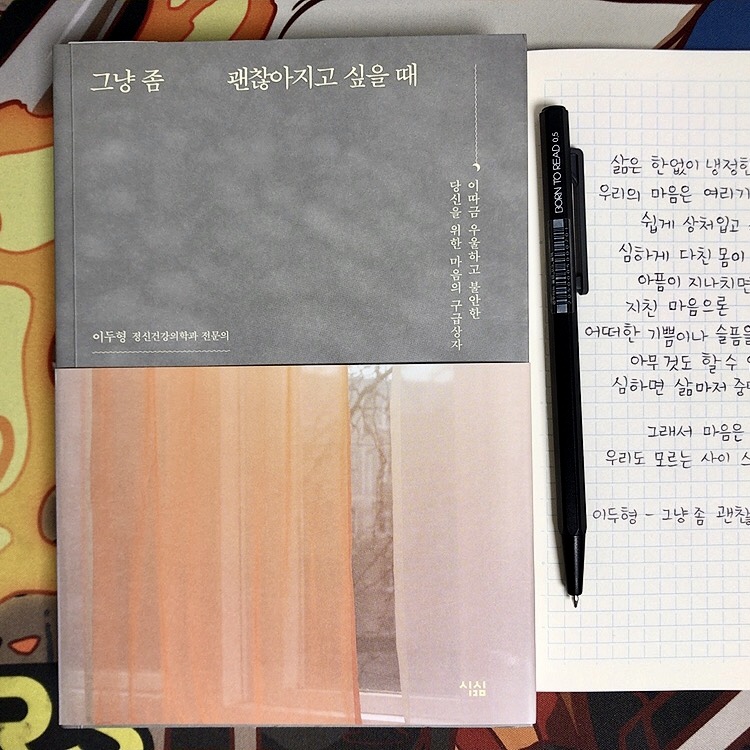 그냥 좀 괜찮아지고 싶을 때
이따금 우울하고 불안한
당신을 위한 마음의 구급상자
이두형 정신건강의학과 전문의
심심
BORN TO READ 0.5
삶은 한없이 냉정한
우리의 마음은 여리기
쉽게 상처입고
심하게 다친 몸이
아픔이 지나치면
지친 마음으론
어떠한 기쁨이나 슬픔을
아무것도 할 수
심하면 삶마저
그래서 마음은
우리도 모르는 사이
이두형 - 그냥 좀 괜찮
RS